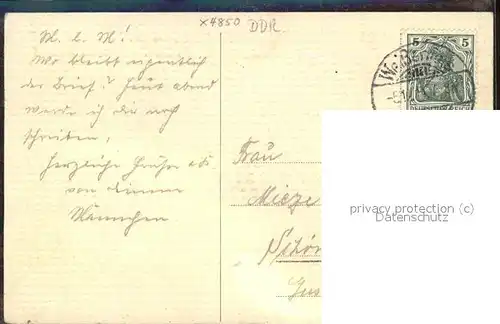 x4850
DDR
M. l. M!
Wo bleibt eigentlich
der Brief? Heut abend
werde ich dir noch
schreiben,
Herzliche Grüße
von deinem
Männchen
5 5
DEUTSCHES REICH
Frau
Mieze
privacy protection (c)
Datenschutz